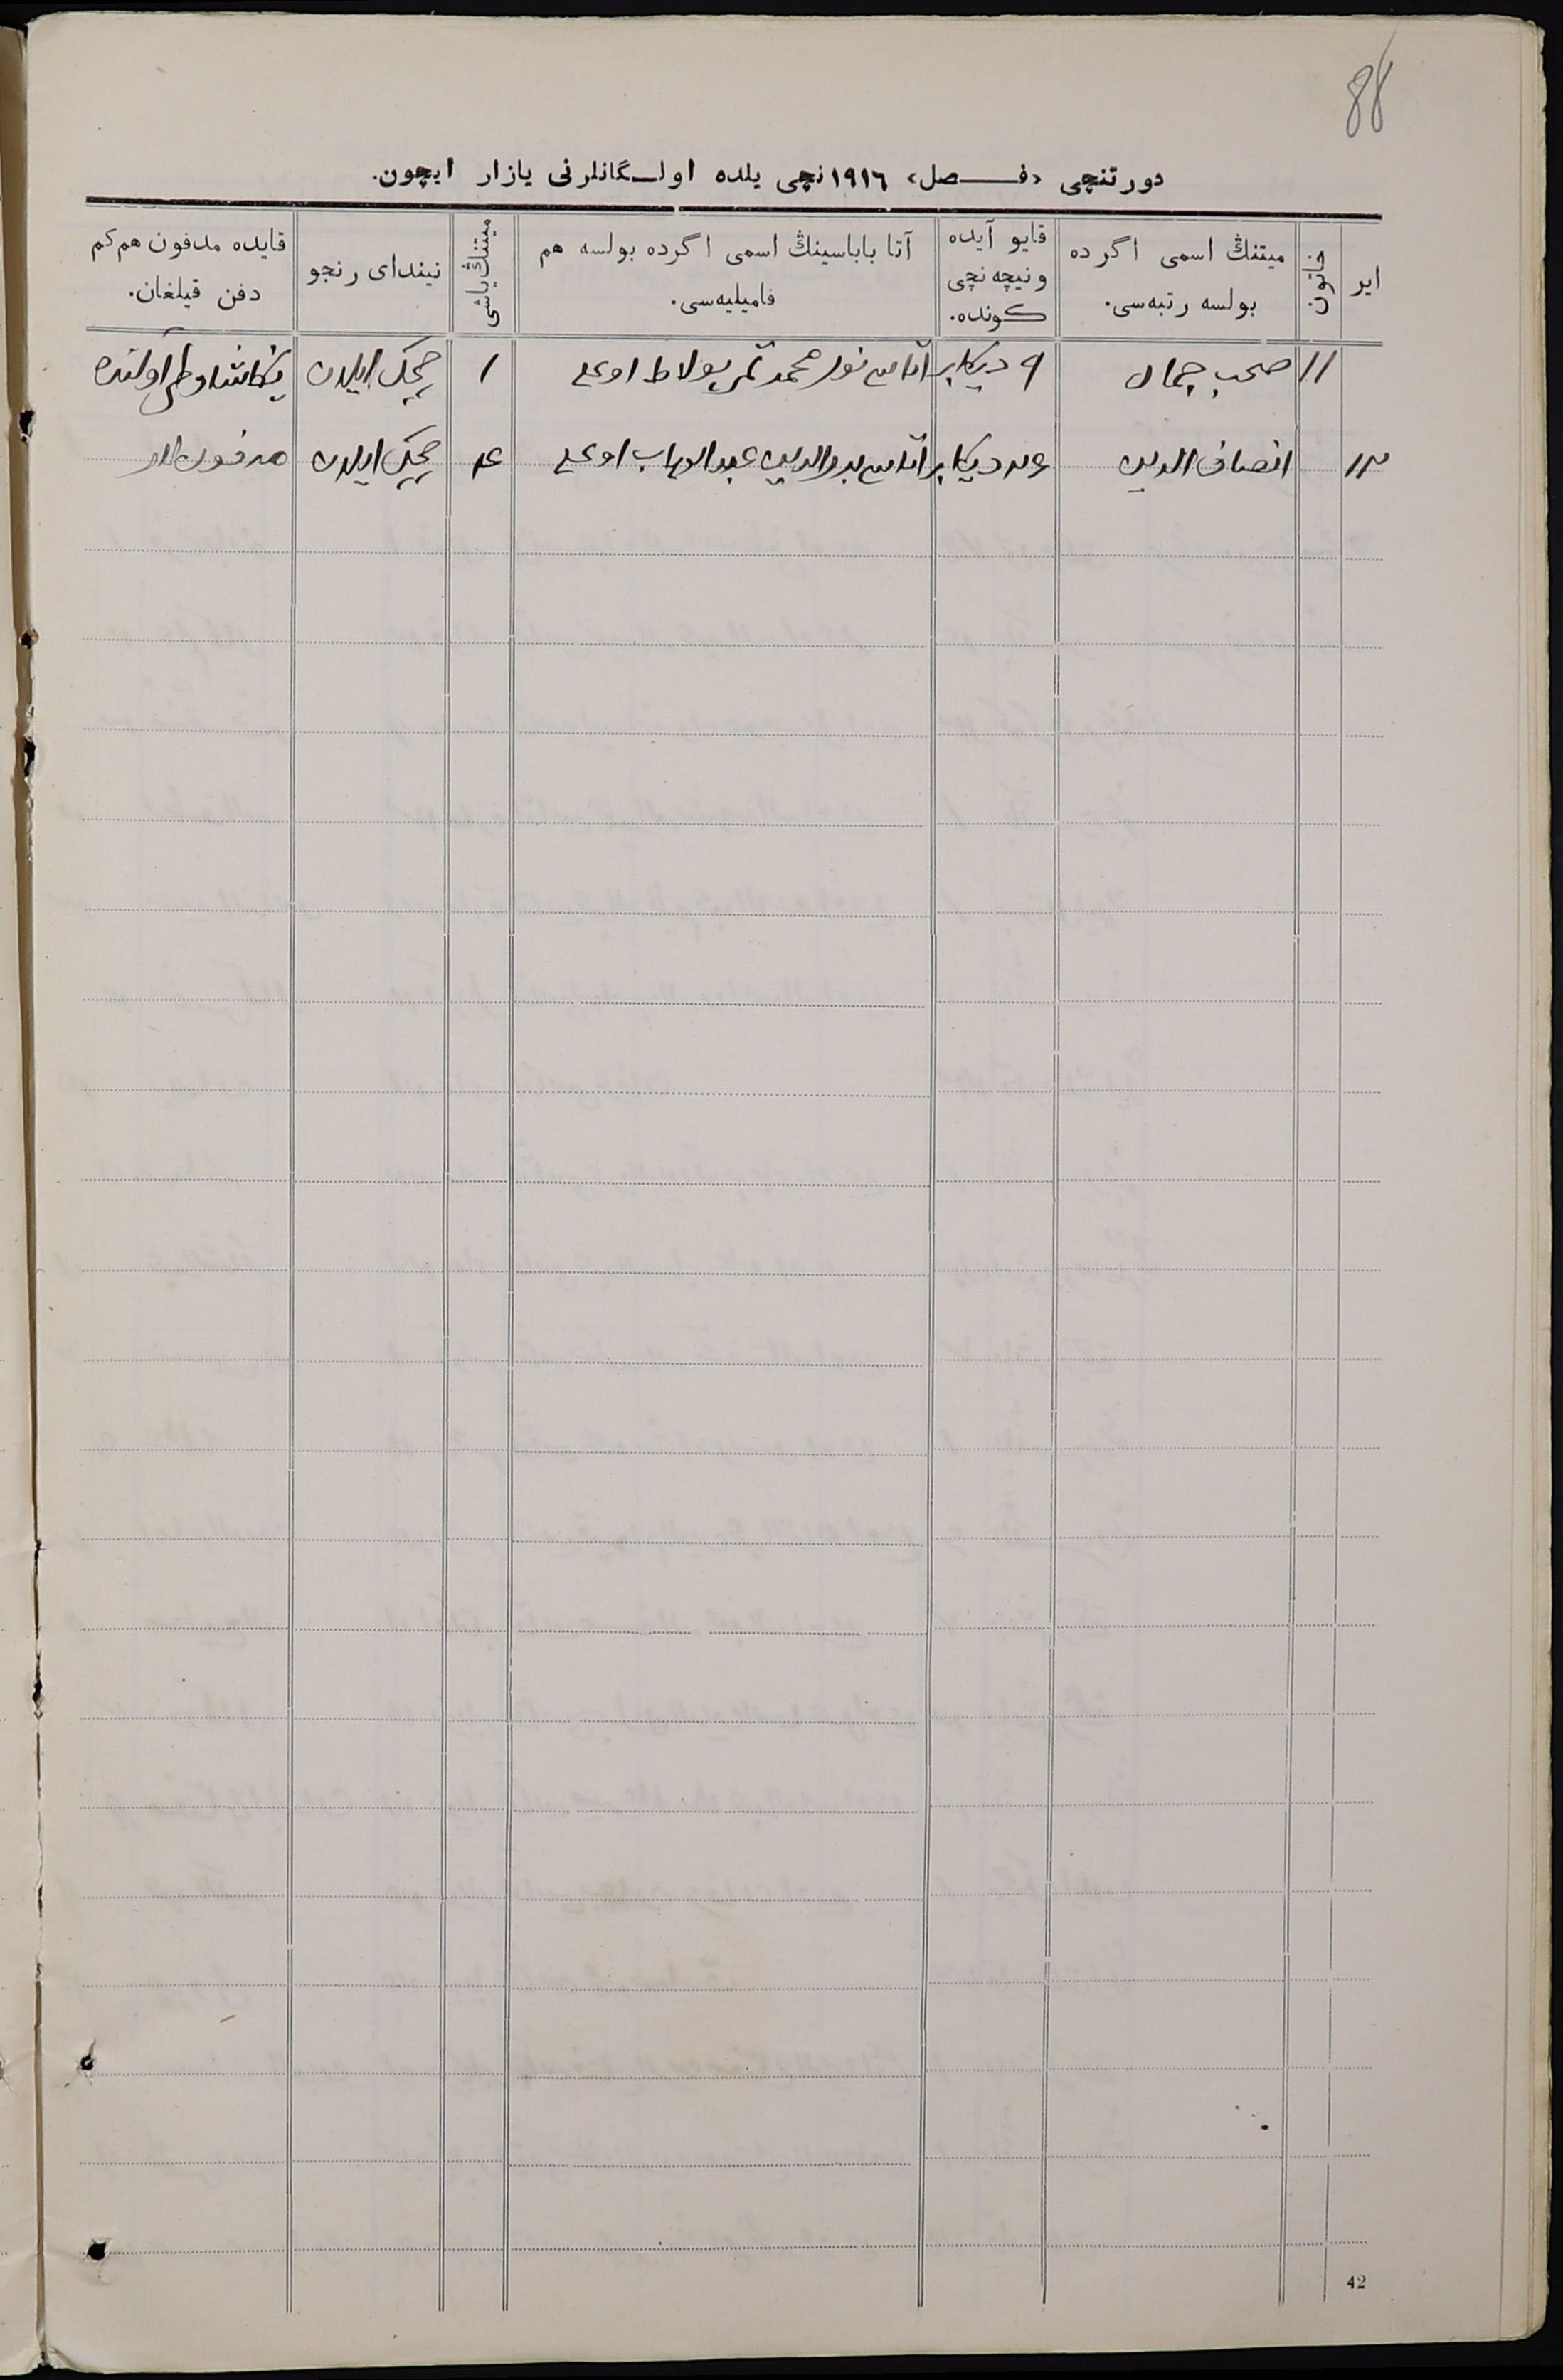 88
دورتنچی «فـــصل» ١٩١٦نچی یلده اولـگانلرنی یازار ایچون.
ایر
خاتون
میتنڭ اسمی اگر ده
بولسه رتبه‌سی.
قایو آیده
ونیچه نچی
کونده.
آتا باباسینڭ اسمی اگرده بولسه هم
فامیلیه‌سی.
میتنڭ یاشی
نیندای رنجو
قایده مدفون هم کم
دفن قیلغان.
١١ صحب جمال ٩ دیکابر آتاسی نور محمد تمر بولاط اوغلی ١ چچک ایلدن اولنده
١٣ انصاف الدین دیکابر آتاسی بدرالدین عبدالوهاب اوغلی ٤ چچک ایلدن مدفوندر
42